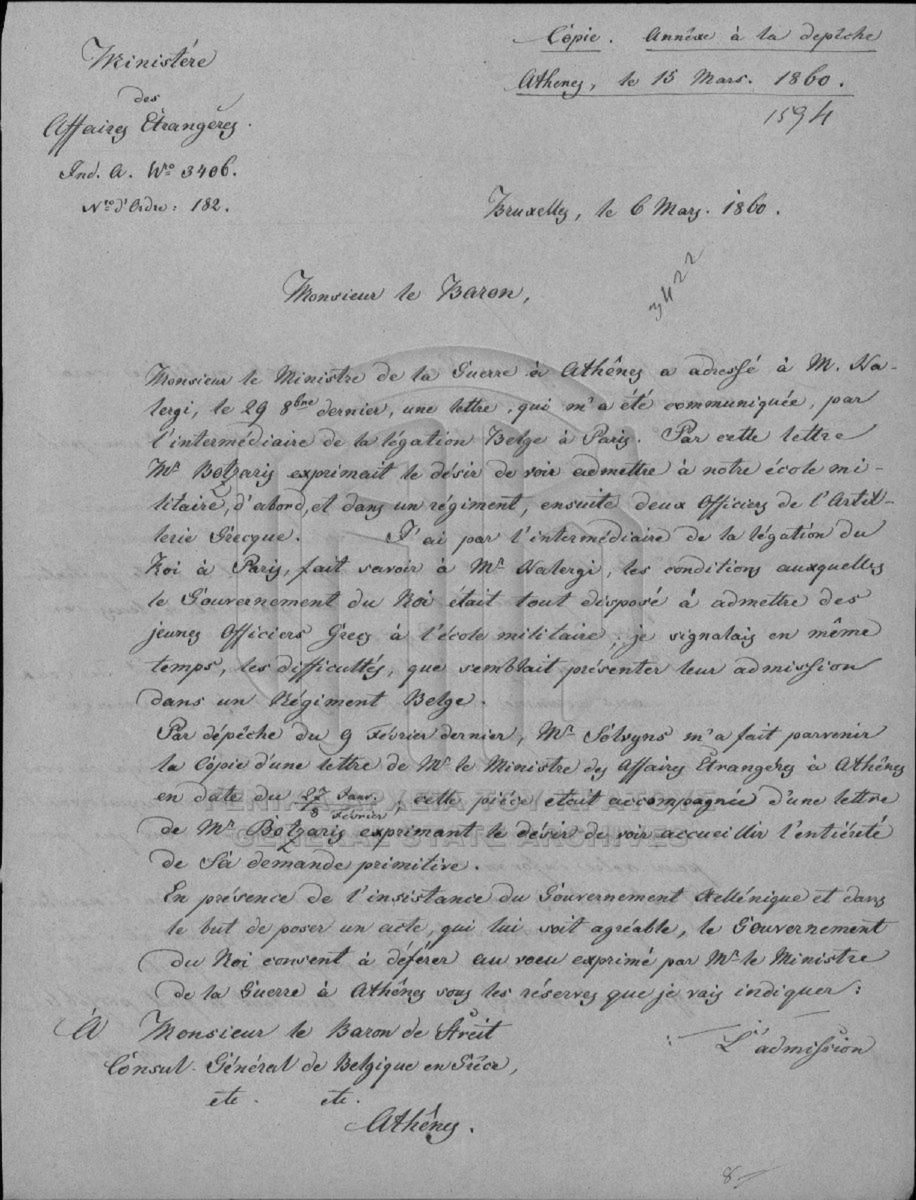 Copie. Annèxe à la depêche
Athenes, le 15 Mars. 1860.
1594
Ministére
des
Affaires Etrangères.
Ind. A. Nro 3406.
Nro d'Ordre: 182.
Bruxelles, le 6 Mars. 1860.
3422
Monsieur le Baron,
Monsieur le Ministre de la Guerre à Athênes a adressé à M. Ka-
lergi, le 29 8bre dernier, une lettre, qui m'a été communiquée, par
l'intermédiaire de la légation Belge à Paris. Par cette lettre
Mr Botzaris exprimait le désir de voir admettre à notre école mi-
litaire, d'abord, et dans un régiment, ensuite deux Officiers de l'Artil-
lerie Grecque. J'ai par l'intermédiaire de la légation du
Roi à Paris, fait savoir à Mr Kalergi, les conditions auxquelles
le Gouvernement du Roi était tout disposé à admettre des
jeunes Officiers Grecs à l'école militaire; je signalais en même
temps, les difficultés, que semblait présenter leur admission
dans un Régiment Belge.
Par dépêche du 9 Février dernier, Mr Solvyns m'a fait parvenir
la Copie d'une lettre de Mr le Ministre des Affaires Etrangéres à Athênes
en date du 27 Janv. / 8 Février, cette pièce était accompagnée d'une lettre
de Mr Botzaris exprimant le désir de voir accueillir l'entiéreté
de Sa demande primitive.
En présence de l'insistance du Gouvernement Hellénique et dans
le but de poser un acte, qui lui soit agréable, le Gouvernement
du Roi consent à déférer au voeu exprimé par Mr le Ministre
de la Guerre à Athênes sous les réserves que je vais indiquer:
L'admission
À Monsieur le Baron de Streit
Consul Général de Belgique en Grèce,
etc. etc.
Athênes.
8
GENERAL STATE ARCHIVES